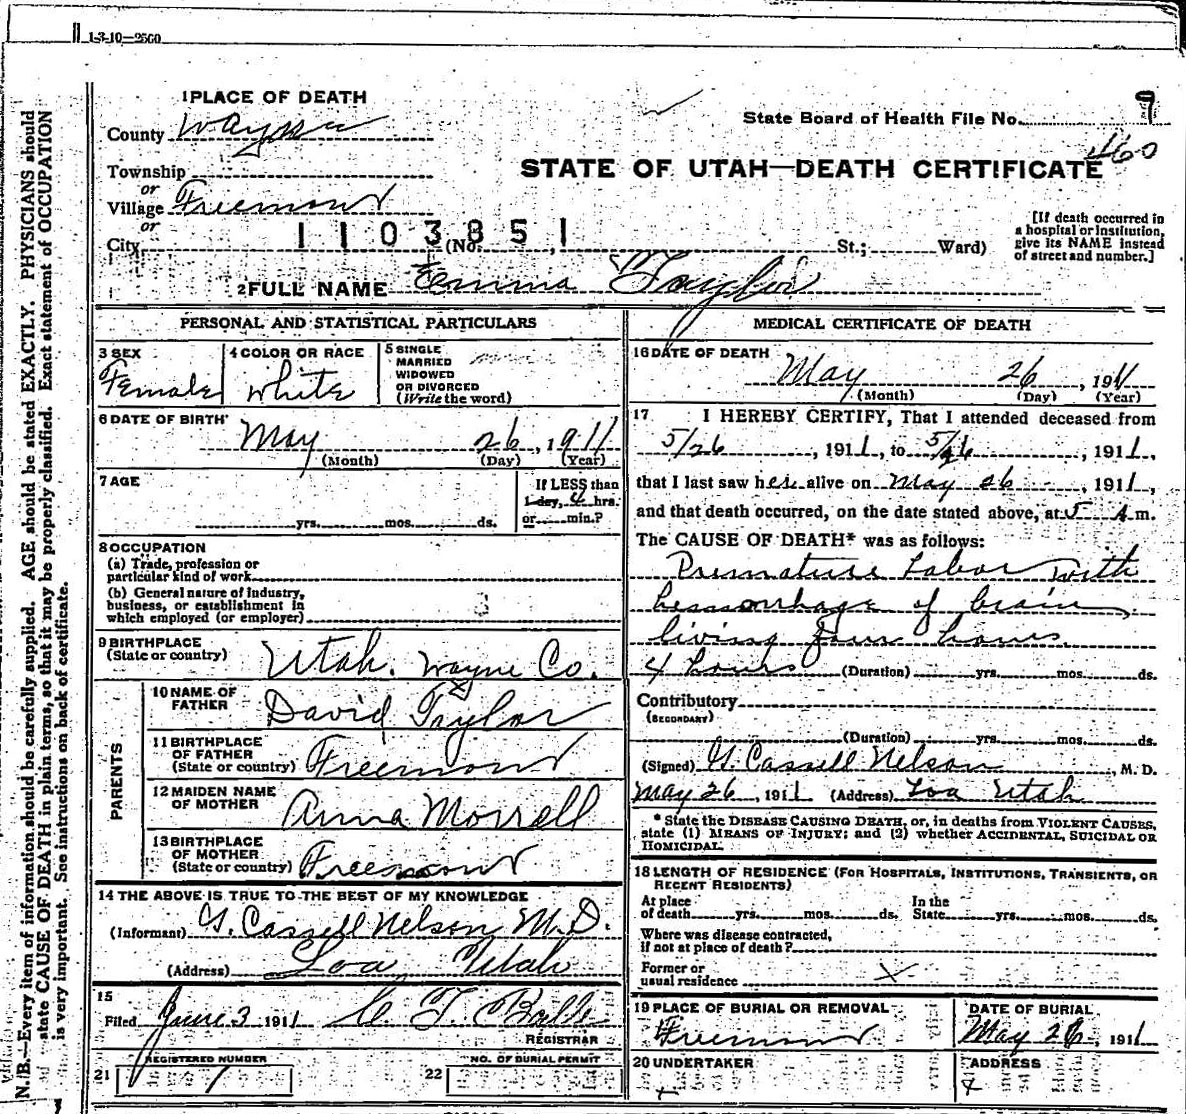 1-3-10—2500
1 PLACE OF DEATH
County Wayne
State Board of Health File No. 9
160
STATE OF UTAH—DEATH CERTIFICATE
Township
or
Village Freemont
or
City
1103851
(No. St.; Ward)
[If death occurred in
a hospital or institution,
give its NAME instead
of street and number.]
2 FULL NAME Emma Taylor
PERSONAL AND STATISTICAL PARTICULARS
3 SEX
Female
4 COLOR OR RACE
White
5 SINGLE
MARRIED
WIDOWED
OR DIVORCED
(Write the word)
6 DATE OF BIRTH
May 26, 1911
(Month) (Day) (Year)
7 AGE
yrs. mos. ds.
If LESS than
1 day, 4 hrs.
or min.?
8 OCCUPATION
(a) Trade, profession or
particular kind of work
(b) General nature of industry,
business, or establishment in
which employed (or employer)
9 BIRTHPLACE
(State or country) Utah. Wayne Co.
PARENTS
10 NAME OF
FATHER David Taylor
11 BIRTHPLACE
OF FATHER
(State or country) Freemont
12 MAIDEN NAME
OF MOTHER Anna Morrell
13 BIRTHPLACE
OF MOTHER
(State or country) Freemont
14 THE ABOVE IS TRUE TO THE BEST OF MY KNOWLEDGE
(Informant) G. Cassell Nelson M.D.
(Address) Loa, Utah
15
Filed June 3 1911
REGISTRAR
REGISTERED NUMBER
21
NO. OF BURIAL PERMIT
22
MEDICAL CERTIFICATE OF DEATH
16 DATE OF DEATH
May 26, 1911
(Month) (Day) (Year)
17 I HEREBY CERTIFY, That I attended deceased from
5/26, 1911, to 5/26, 1911,
that I last saw her alive on May 26, 1911,
and that death occurred, on the date stated above, at 5 A m.
The CAUSE OF DEATH* was as follows:
Premature Labor with
hemorrhage of brain,
living four hours.
4 hours (Duration) yrs. mos. ds.
Contributory
(SECONDARY)
(Duration) yrs. mos. ds.
(Signed) G. Cassell Nelson, M. D.
May 26, 1911 (Address) Loa Utah
* State the DISEASE CAUSING DEATH, or, in deaths from VIOLENT CAUSES,
state (1) MEANS OF INJURY; and (2) whether ACCIDENTAL, SUICIDAL OR
HOMICIDAL.
18 LENGTH OF RESIDENCE (FOR HOSPITALS, INSTITUTIONS, TRANSIENTS, OR
RECENT RESIDENTS)
At place In the
of death yrs. mos. ds. State yrs. mos. ds.
Where was disease contracted,
if not at place of death?
Former or
usual residence X
19 PLACE OF BURIAL OR REMOVAL
Freemont
DATE OF BURIAL
May 26, 1911
20 UNDERTAKER
ADDRESS
N. B.—Every item of information should be carefully supplied. AGE should be stated EXACTLY. PHYSICIANS should
state CAUSE OF DEATH in plain terms, so that it may be properly classified. Exact statement of OCCUPATION
is very important. See instructions on back of certificate.